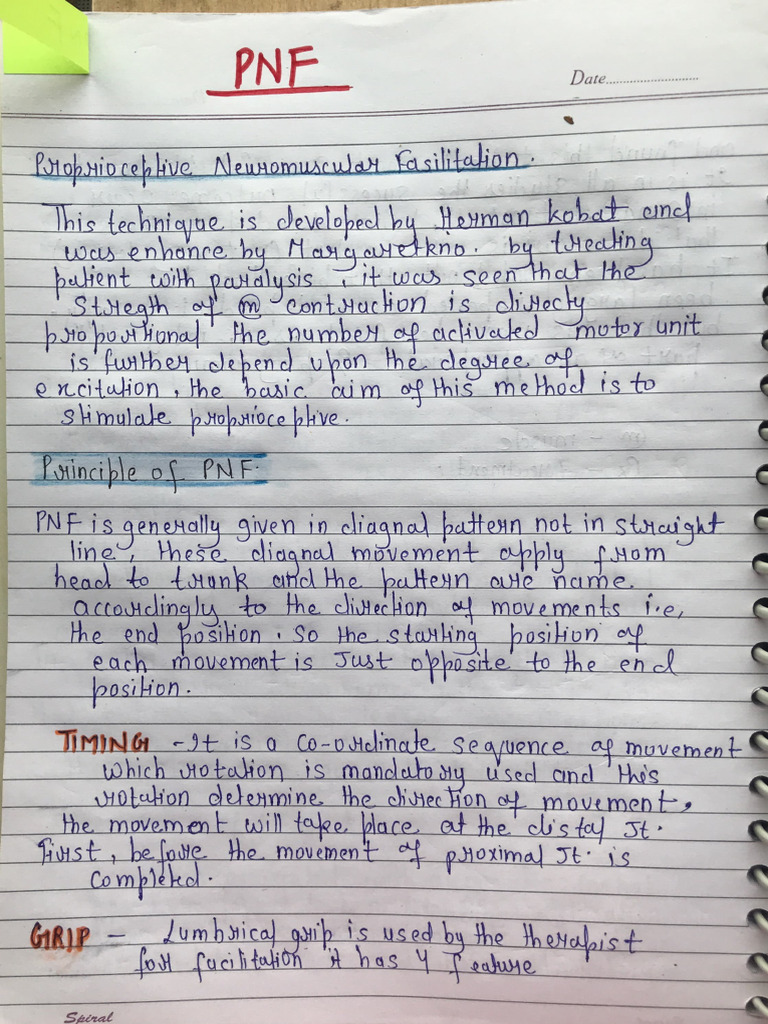 PNF
Date
Proprioceptive Neuromuscular Fasilitation.
This technique is developed by Herman kobat and
was enhance by Margaretkno. by treating
patient with paralysis, it was seen that the
Stregth of ⓜ contraction is directy
proportional the number of activated motor unit
is further depend upon the degree of
excitation, the basic aim of this method is to
stimulate proprioceptive.
Principle of PNF.
PNF is generally given in diagnal pattern not in straight
line, these diagnal movement apply from
head to trunk and the pattern are name
accordingly to the direction of movements i.e,
the end position. So the starting position of
each movement is Just opposite to the end
position.
TIMING - It is a co-ordinate sequence of movement
which rotation is mandatory used and this
rotation determine the direction of movement,
the movement will take place at the distal Jt.
First, before the movement of proximal Jt. is
completed.
GRIP - Lumbrical grip is used by the therapist
for facilitation it has 4 feature
Spiral